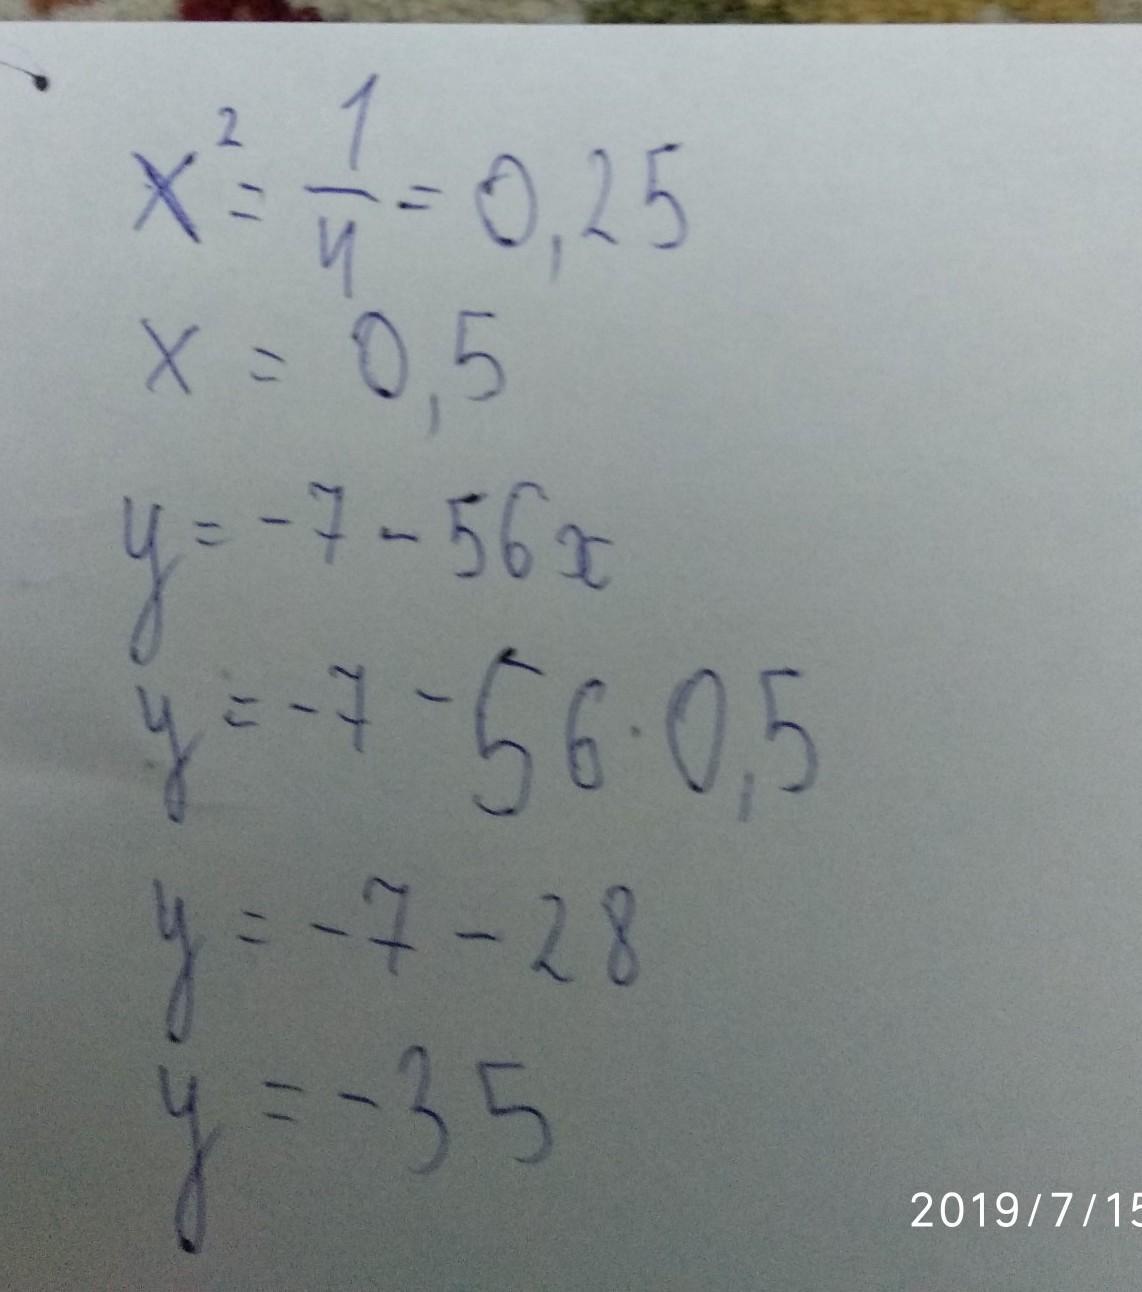 x² = 1/4 = 0,25
x = 0,5
y = -7 - 56x
y = -7 - 56 · 0,5
y = -7 - 28
y = -35
2019/7/15